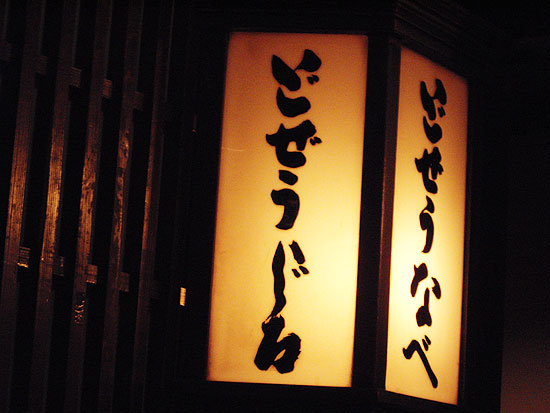 どぜうじる
どぜうなべ